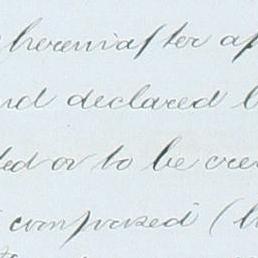 hereinafter ap
nd declared b
ted or to be cre
composed (